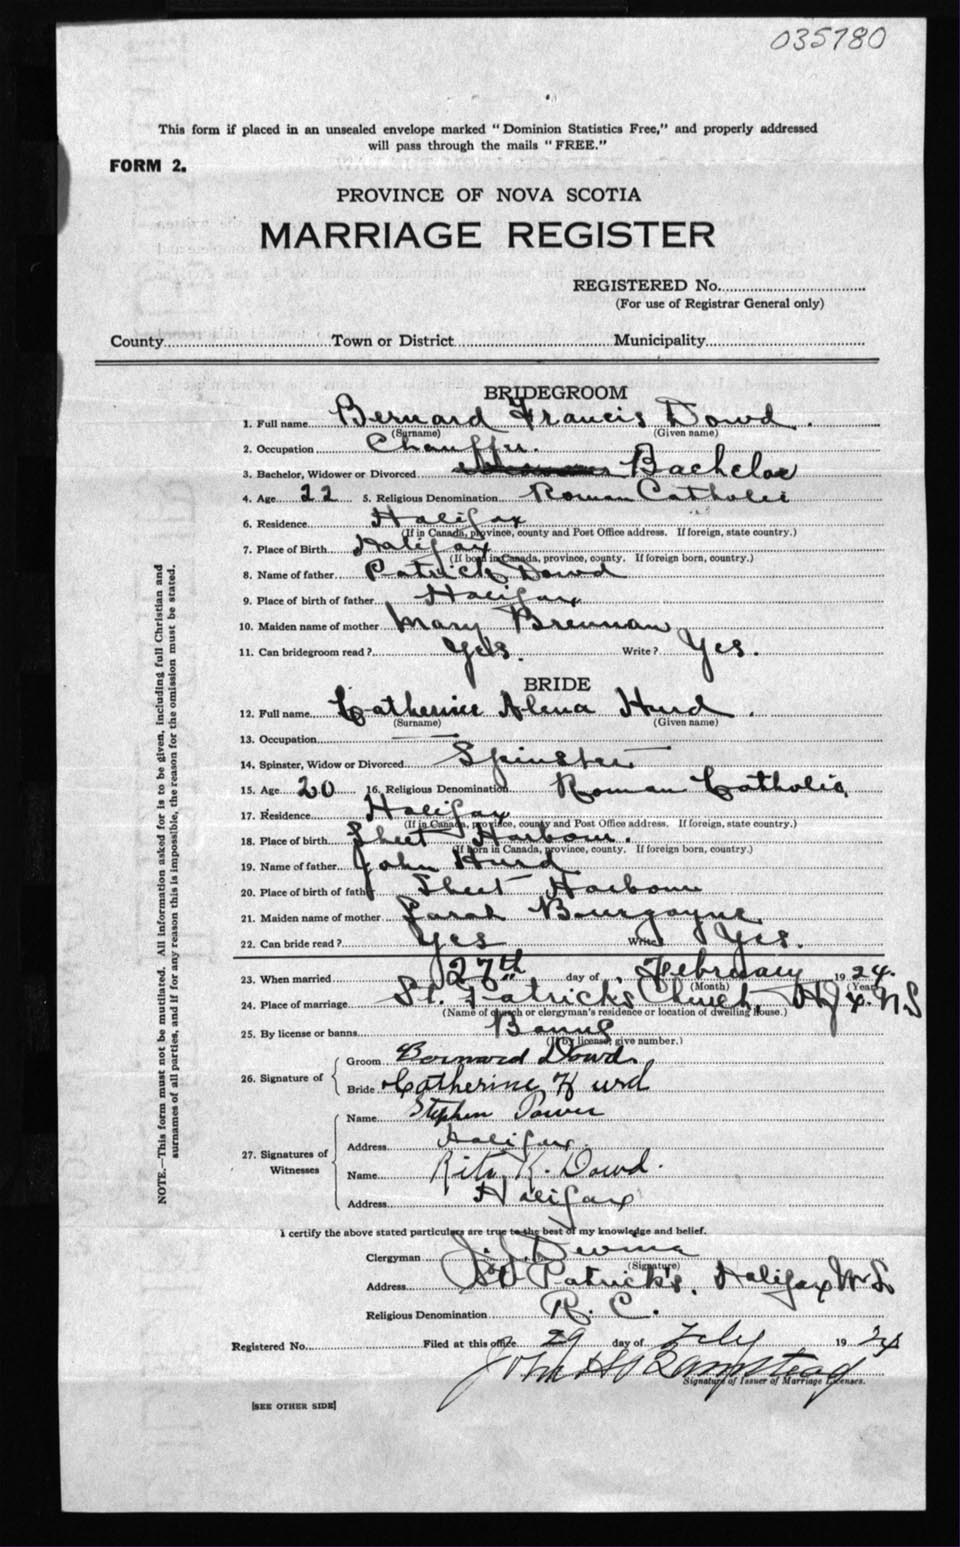 035780
This form if placed in an unsealed envelope marked "Dominion Statistics Free," and properly addressed
will pass through the mails "FREE."
FORM 2.
PROVINCE OF NOVA SCOTIA
MARRIAGE REGISTER
REGISTERED No.
(For use of Registrar General only)
County Town or District Municipality
BRIDEGROOM
1. Full name Bernard Francis Dowd.
(Surname) (Given name)
2. Occupation Chauffer.
3. Bachelor, Widower or Divorced Bachelor
4. Age 22 5. Religious Denomination Roman Catholic
6. Residence Halifax
(If in Canada, province, county and Post Office address. If foreign, state country.)
7. Place of Birth Halifax
(If born in Canada, province, county. If foreign born, country.)
8. Name of father Patrick Dowd
9. Place of birth of father Halifax
10. Maiden name of mother Mary Brennan
11. Can bridegroom read? Yes. Write? Yes.
BRIDE
12. Full name Catherine Alena Hurd.
(Surname) (Given name)
13. Occupation
14. Spinster, Widow or Divorced Spinster
15. Age 20 16. Religious Denomination Roman Catholic
17. Residence Halifax
(If in Canada, province, county and Post Office address. If foreign, state country.)
18. Place of birth Sheet Harbour.
(If born in Canada, province, county. If foreign born, country.)
19. Name of father John Hurd
20. Place of birth of father Sheet Harbour
21. Maiden name of mother Sarah Bourgoyne
22. Can bride read? Yes Write Yes.
23. When married 27th day of February 1924.
(Month) (Year)
24. Place of marriage St. Patrick's Church, Hfx. NS
(Name of church or clergyman's residence or location of dwelling house.)
25. By license or banns Banns
(If by license, give number.)
26. Signature of Groom Bernard Dowd
Bride Catherine Hurd
27. Signatures of Witnesses Name Stephen Power
Address Halifax.
Name Rita K. Dowd.
Address Halifax
I certify the above stated particulars are true to the best of my knowledge and belief.
Clergyman Devine
(Signature)
Address St Patrick's, Halifax N.S.
Religious Denomination R. C.
Registered No. Filed at this office 29 day of Feby 1924
Signature of Issuer of Marriage Licenses.
[SEE OTHER SIDE]
NOTE.—This form must not be mutilated. All information asked for is to be given, including full Christian and
surnames of all parties, and if for any reason this is impossible, the reason for the omission must be stated.